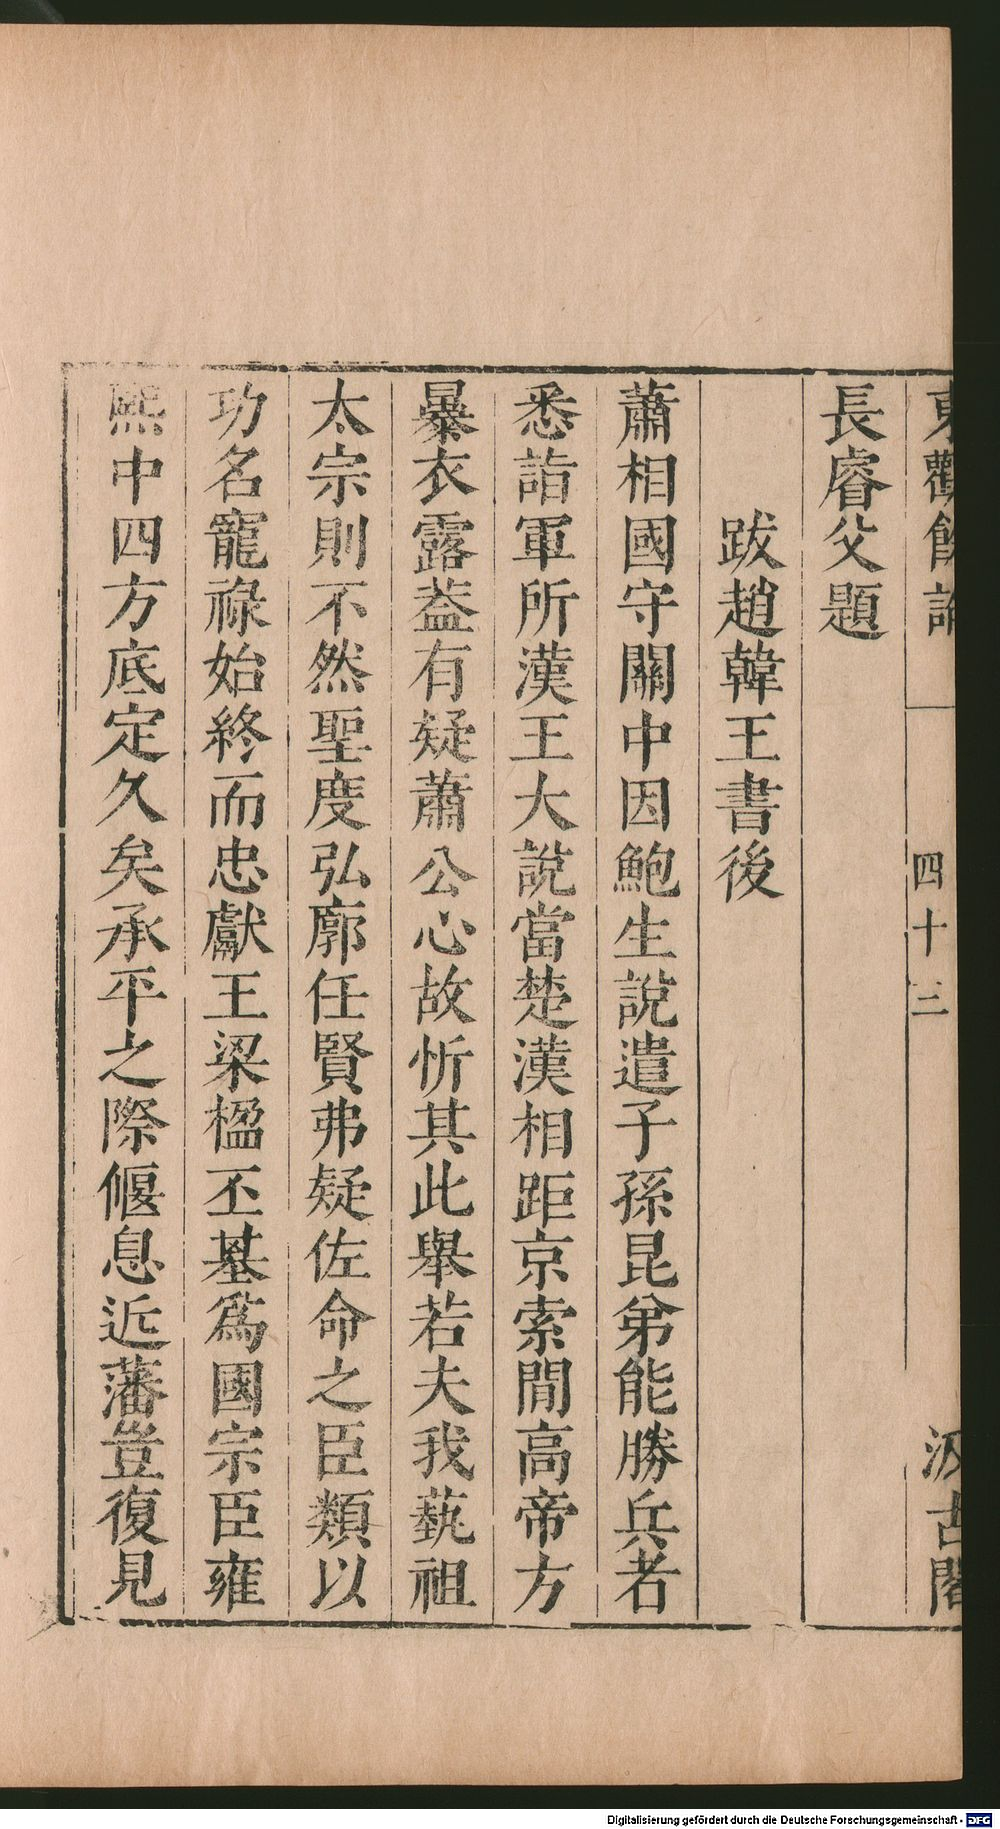 東觀餘論
四十三
汲古閣
長睿父題
跋趙韓王書後
蕭相國守關中因鮑生說遣子孫昆弟能勝兵者
悉詣軍所漢王大說當楚漢相距京索閒高帝方
暴衣露葢有疑蕭公心故忻其此舉若夫我藝祖
太宗則不然聖度弘廓任賢弗疑佐命之臣類以
功名寵祿始終而忠獻王梁楹丕基爲國宗臣雍
熙中四方底定久矣承平之際偃息近藩豈復見
Digitalisierung gefördert durch die Deutsche Forschungsgemeinschaft - DFG